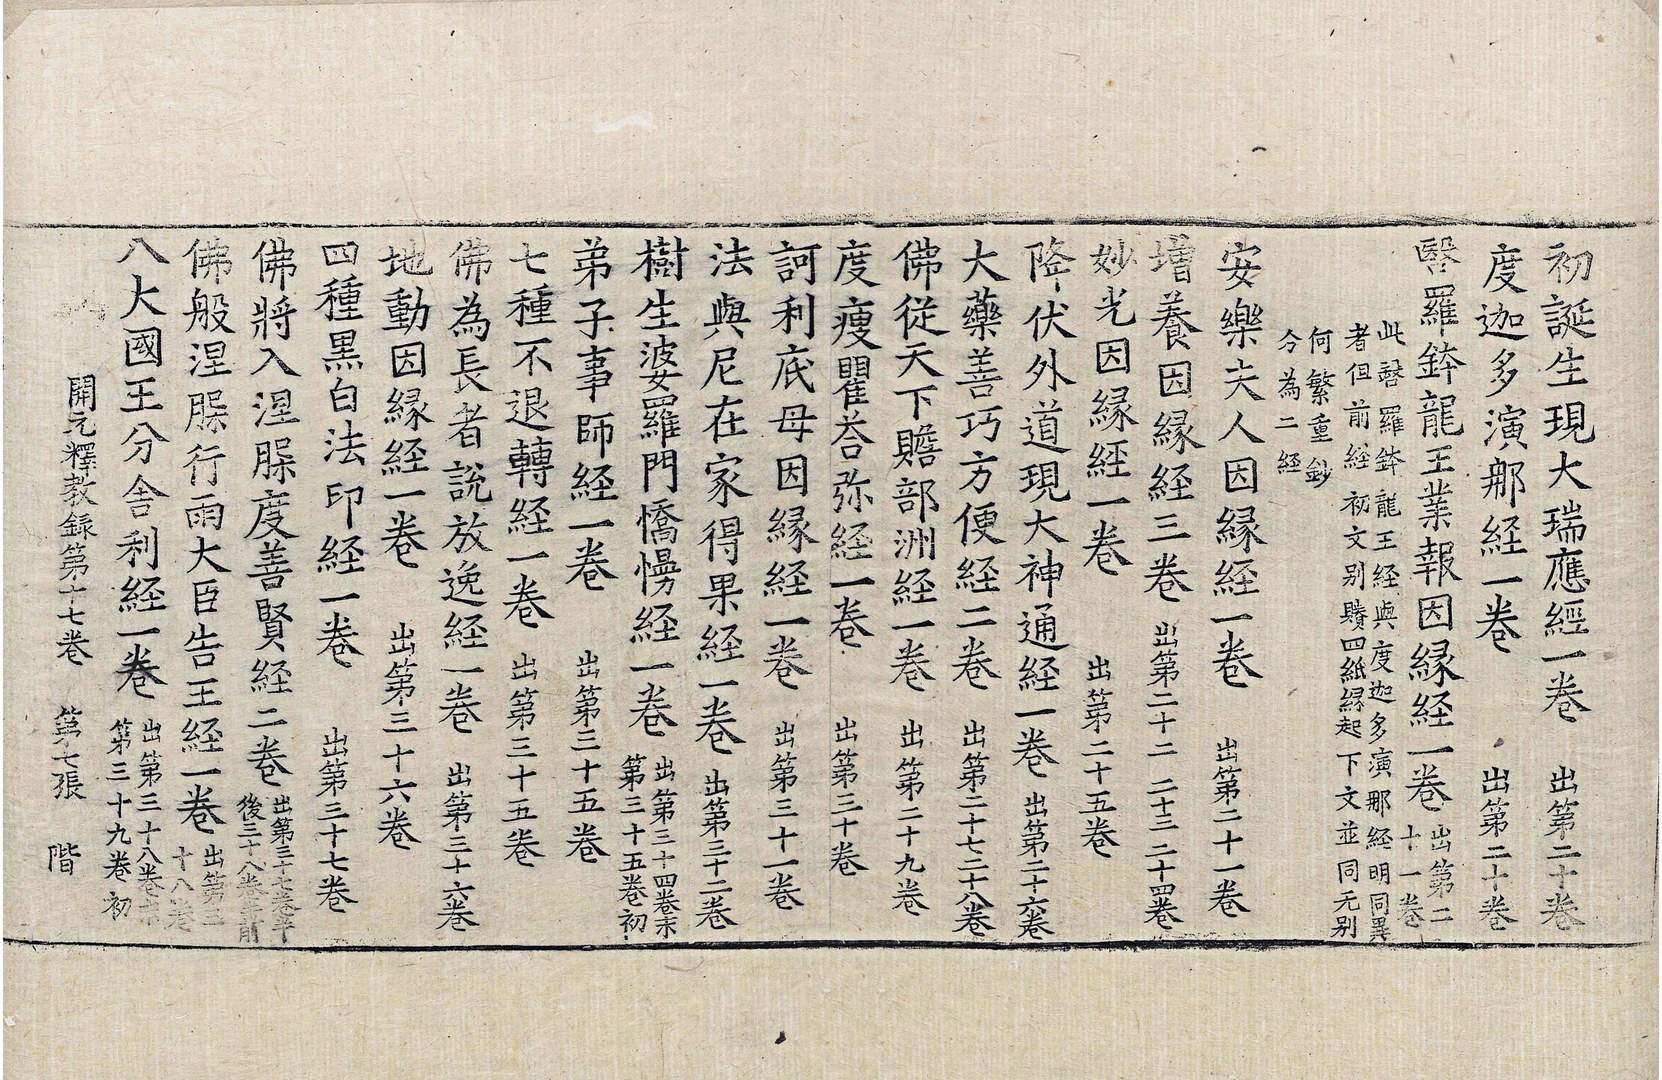 初誕生現大瑞應經一卷 出第二十卷
度迦多演那経一卷 出第二十卷
醫羅鉢龍王業報因縁経一卷 出第二十一卷
此醫羅鉢龍王経與度迦多演那経明同異
者但前経初文別賸四紙縁起下文並同无别
何繁重鈔
今為二経
安樂夫人因縁経一卷 出第二十一卷
增養因縁経三卷 出第二十二 二十三 二十四卷
妙光因縁経一卷 出第二十五卷
降伏外道現大神通経一卷 出第二十六卷
大藥善巧方便経二卷 出第二十七二十八卷
佛從天下贍部洲経一卷 出第二十九卷
度瘦瞿荅弥経一卷 出第三十卷
訶利底母因縁経一卷 出第三十一卷
法與尼在家得果経一卷 出第三十二卷
樹生婆羅門憍慢経一卷 出第三十四卷末第三十五卷初
弟子事師経一卷 出第三十五卷
七種不退轉経一卷 出第三十五卷
佛為長者說放逸経一卷 出第三十六卷
地動因縁経一卷 出第三十六卷
四種黑白法印経一卷 出第三十七卷
佛將入涅槃度善賢経二卷 出第三十七卷半後三十八卷半前
佛般涅槃行雨大臣告王経一卷 出第三十八卷
八大國王分舍利経一卷 出第三十八卷末第三十九卷初
開元釋教録第十七卷 第七張 階